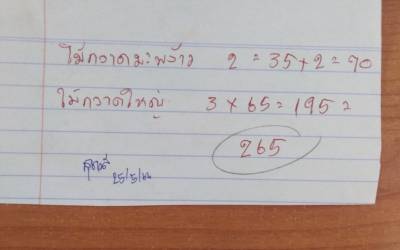 ไม้กวาดมะพร้าว 2 = 35+2 = 70
ไม้กวาดใหญ่ 3 × 65 = 195 =
265
25/5/66